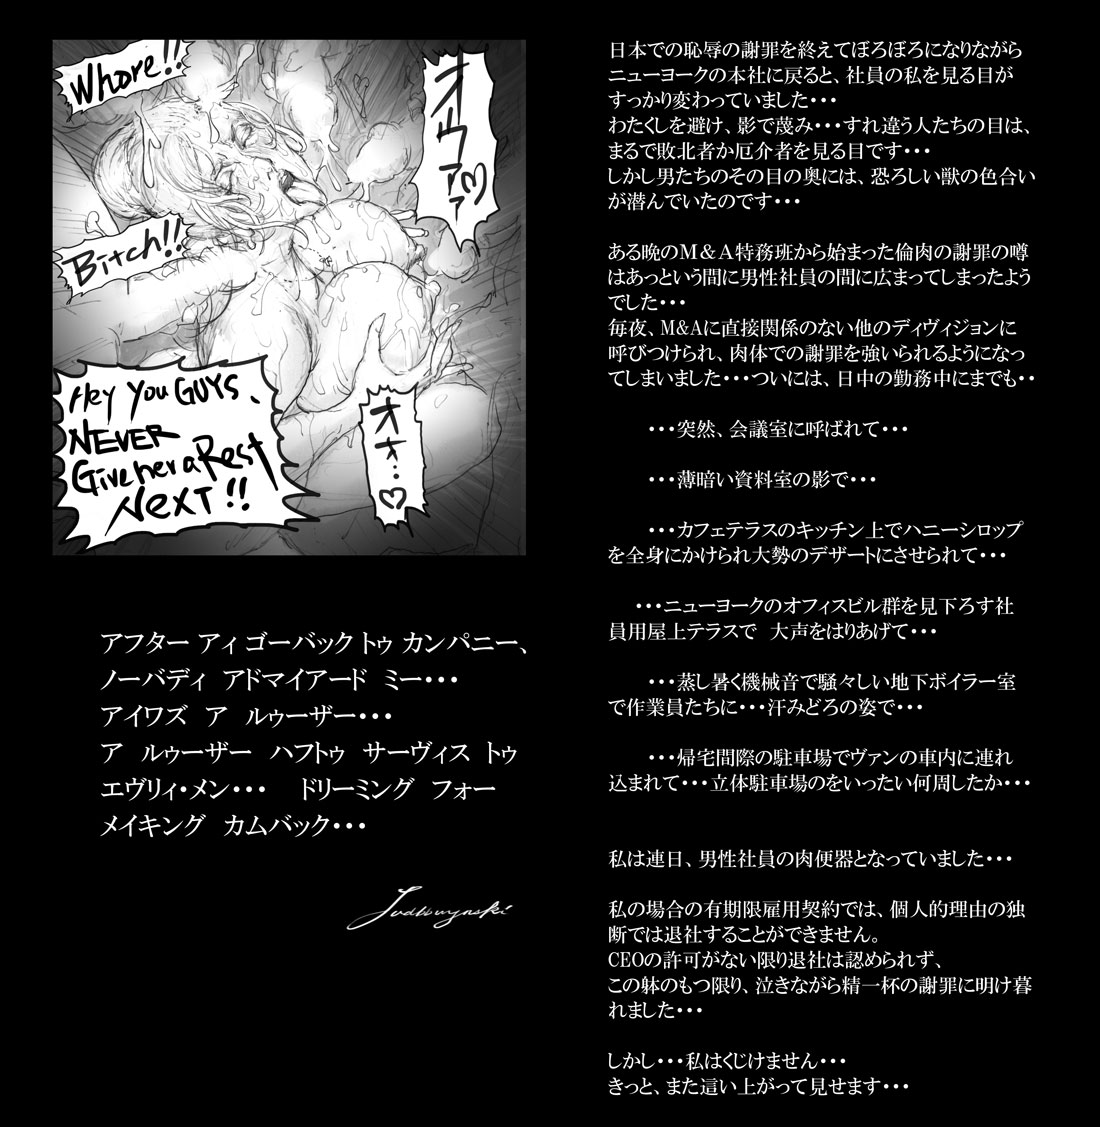 Whore!!
オウァァ♡
Bitch!!
Hey You GUYS、
NEVER
Give her a Rest
NEXT!!
オォ…♡
アフター アィ ゴーバック トゥ カンパニー、
ノーバディ アドマイアード ミー・・・
アイワズ ア ルゥーザー・・・
ア ルゥーザー ハフトゥ サーヴィス トゥ
エヴリィ・メン・・・ ドリーミング フォー
メイキング カムバック・・・
日本での恥辱の謝罪を終えてぼろぼろになりながら
ニューヨークの本社に戻ると、社員の私を見る目が
すっかり変わっていました・・・
わたくしを避け、影で蔑み・・・すれ違う人たちの目は、
まるで敗北者か厄介者を見る目です・・・
しかし男たちのその目の奥には、恐ろしい獣の色合い
が潜んでいたのです・・・
ある晩のM＆A特務班から始まった倫肉の謝罪の噂
はあっという間に男性社員の間に広まってしまったよう
でした・・・
毎夜、M&Aに直接関係のない他のディヴィジョンに
呼びつけられ、肉体での謝罪を強いられるようになっ
てしまいました・・・ついには、日中の勤務中にまでも・・
・・・突然、会議室に呼ばれて・・・
・・・薄暗い資料室の影で・・・
・・・カフェテラスのキッチン上でハニーシロップ
を全身にかけられ大勢のデザートにさせられて・・・
・・・ニューヨークのオフィスビル群を見下ろす社
員用屋上テラスで 大声をはりあげて・・・
・・・蒸し暑く機械音で騒々しい地下ボイラー室
で作業員たちに・・・汗みどろの姿で・・・
・・・帰宅間際の駐車場でヴァンの車内に連れ
込まれて・・・立体駐車場のをいったい何周したか・・・
私は連日、男性社員の肉便器となっていました・・・
私の場合の有期限雇用契約では、個人的理由の独
断では退社することができません。
CEOの許可がない限り退社は認められず、
この躰のもつ限り、泣きながら精一杯の謝罪に明け暮
れました・・・
しかし・・・私はくじけません・・・
きっと、また這い上がって見せます・・・